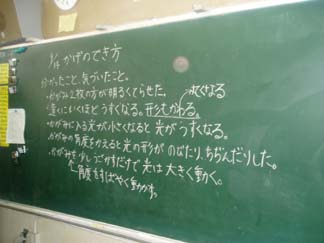 3/4 かげのでき方
分かったこと、気づいたこと。
・かがみ2枚の方が明るくてらせた。
丸くなる
・遠くにいくほどうすくなる。形もかわる。
・かがみに入る光が小さくなると光がうすくなる。
・かがみの角度をかえると光の形がのびたり、ちぢんだりした。
・かがみを少しうごかすだけで光は大きく動く。
角度をすばやく動かす。